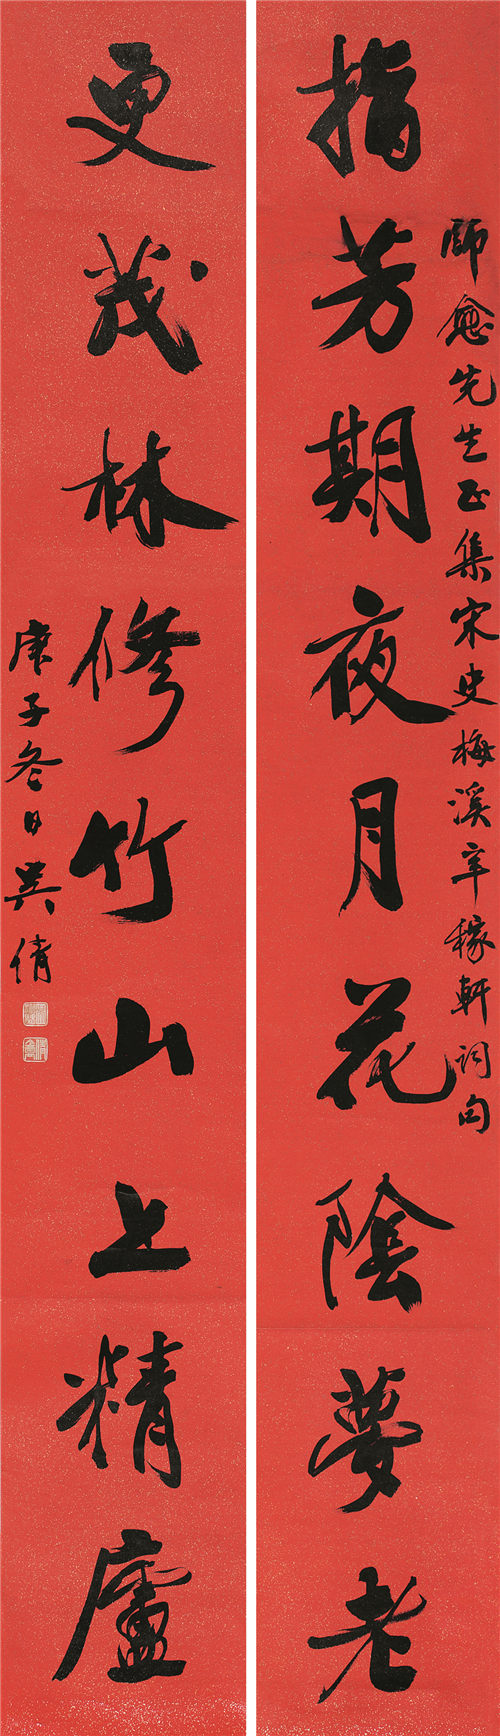 師愈先生正集宋史梅溪辛稼軒詞句
指芳期夜月花陰夢老
更茂林修竹山上精廬
庚子冬日吳倩